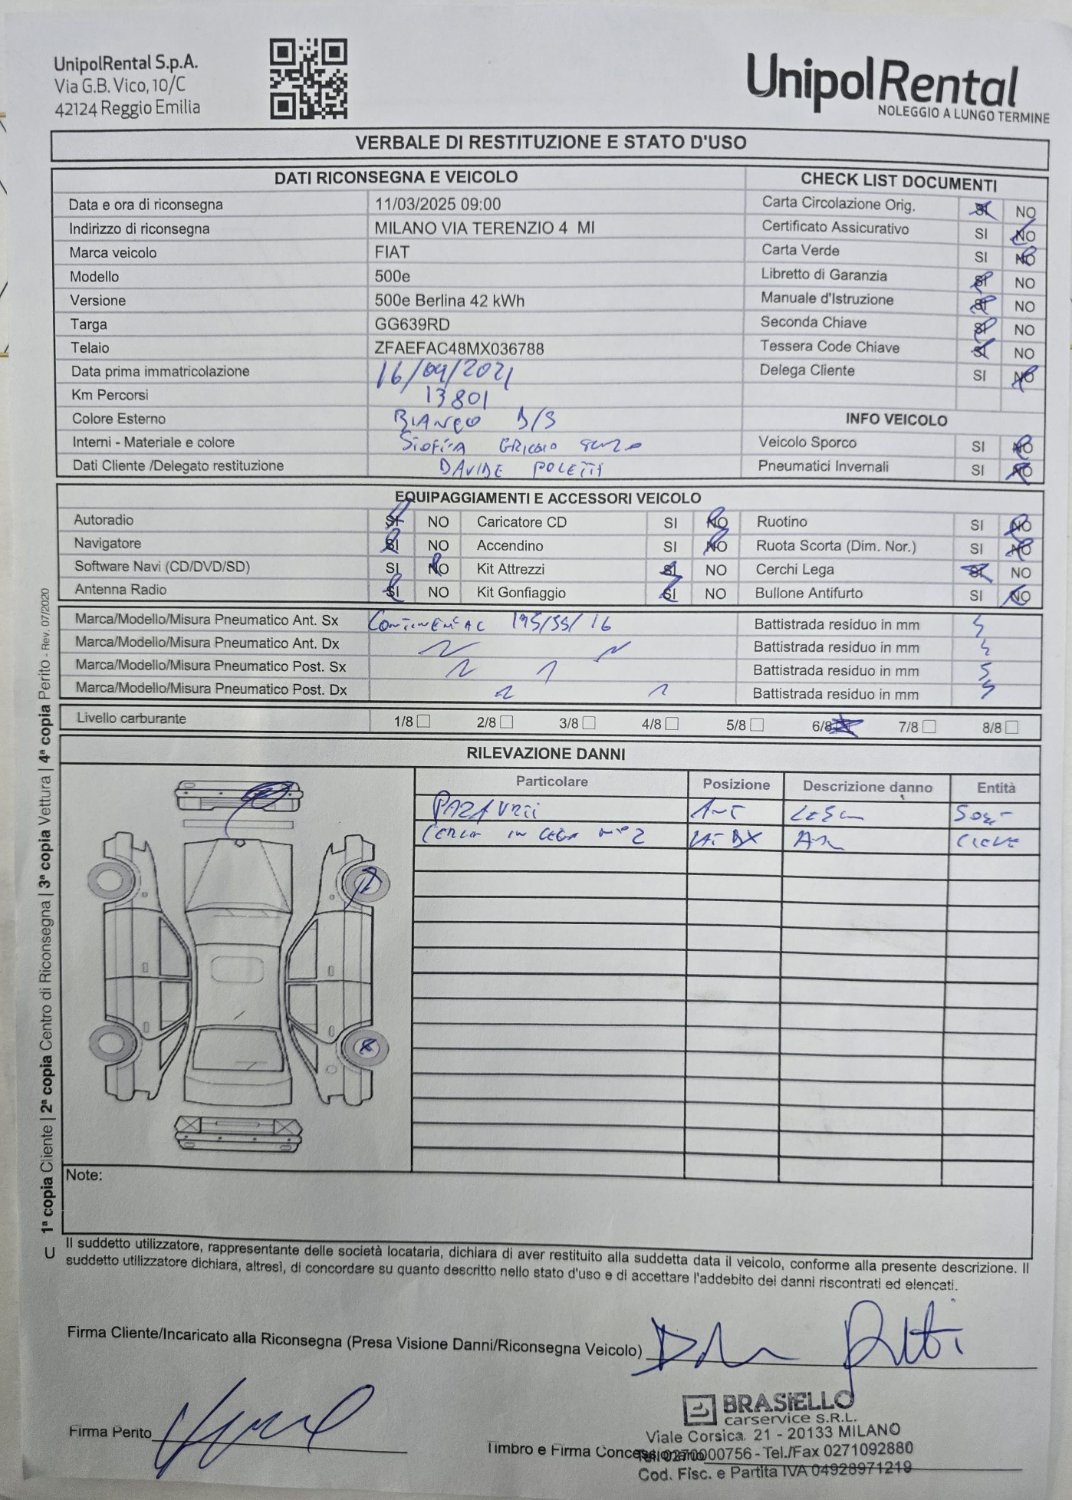 UnipolRental S.p.A.
Via G.B. Vico, 10/C
42124 Reggio Emilia
UnipolRental
NOLEGGIO A LUNGO TERMINE
VERBALE DI RESTITUZIONE E STATO D'USO
DATI RICONSEGNA E VEICOLO
Data e ora di riconsegna 11/03/2025 09:00
Indirizzo di riconsegna MILANO VIA TERENZIO 4 MI
Marca veicolo FIAT
Modello 500e
Versione 500e Berlina 42 kWh
Targa GG639RD
Telaio ZFAEFAC48MX036788
Data prima immatricolazione 16/04/2021
Km Percorsi 13801
Colore Esterno BIANCO B/S
Interni - Materiale e colore
Dati Cliente /Delegato restituzione DAVIDE POLETTI
CHECK LIST DOCUMENTI
Carta Circolazione Orig. SI NO
Certificato Assicurativo SI NO
Carta Verde SI NO
Libretto di Garanzia SI NO
Manuale d'Istruzione SI NO
Seconda Chiave SI NO
Tessera Code Chiave SI NO
Delega Cliente SI NO
INFO VEICOLO
Veicolo Sporco SI NO
Pneumatici Invernali SI NO
EQUIPAGGIAMENTI E ACCESSORI VEICOLO
Autoradio SI NO Caricatore CD SI NO Ruotino SI NO
Navigatore SI NO Accendino SI NO Ruota Scorta (Dim. Nor.) SI NO
Software Navi (CD/DVD/SD) SI NO Kit Attrezzi SI NO Cerchi Lega SI NO
Antenna Radio SI NO Kit Gonfiaggio SI NO Bullone Antifurto SI NO
Marca/Modello/Misura Pneumatico Ant. Sx CONTINENTAL 195/55/16 Battistrada residuo in mm 5
Marca/Modello/Misura Pneumatico Ant. Dx Battistrada residuo in mm 5
Marca/Modello/Misura Pneumatico Post. Sx Battistrada residuo in mm 5
Marca/Modello/Misura Pneumatico Post. Dx Battistrada residuo in mm 5
Livello carburante 1/8 2/8 3/8 4/8 5/8 6/8 7/8 8/8
RILEVAZIONE DANNI
Particolare Posizione Descrizione danno Entità
PARAURTI ANT
CERCHI IN LEGA N°2 DX
Note:
Il suddetto utilizzatore, rappresentante delle società locataria, dichiara di aver restituito alla suddetta data il veicolo, conforme alla presente descrizione. Il
suddetto utilizzatore dichiara, altresì, di concordare su quanto descritto nello stato d'uso e di accettare l'addebito dei danni riscontrati ed elencati.
Firma Cliente/Incaricato alla Riconsegna (Presa Visione Danni/Riconsegna Veicolo)
Firma Perito
Timbro e Firma Concessionario
BRASIELLO
carservice S.R.L.
Viale Corsica, 21 - 20133 MILANO
Tel. 0270000756 - Tel./Fax 0271092880
Cod. Fisc. e Partita IVA 04928971219
U 1ª copia Cliente | 2ª copia Centro di Riconsegna | 3ª copia Vettura | 4ª copia Perito - Rev. 07/2020